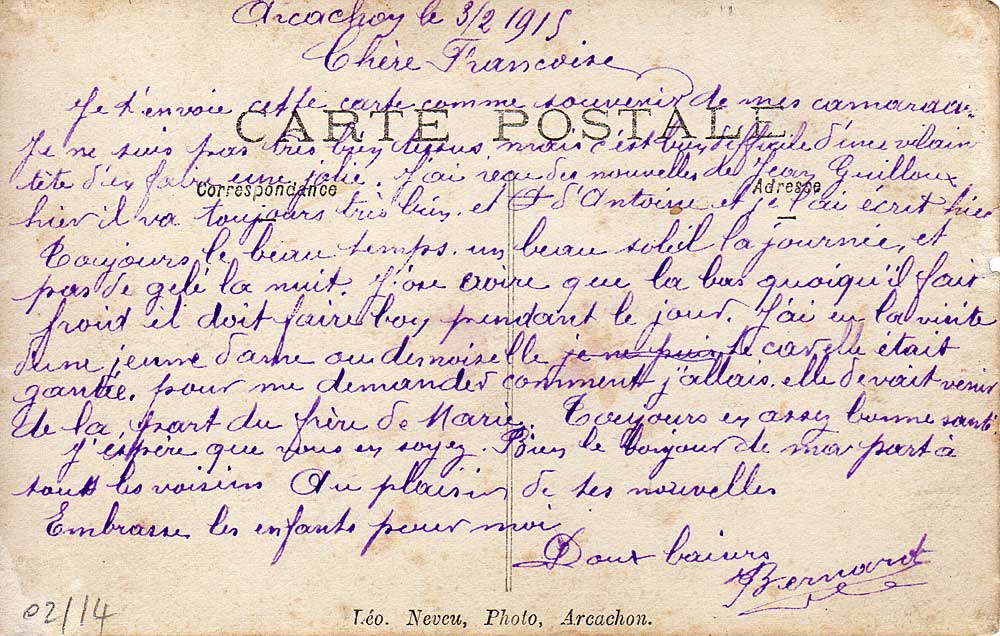 Arcachon le 3/2 1915
Chère Francoise
Je t'envoie cette carte comme souvenir de mes camarad-
CARTE POSTALE
Je ne suis pas très bien dessus, mais c'est bien difficile d'une vilain
tête d'en faire une jolie. J'ai reçu des nouvelles de Jean Guilloux
Correspondance
Adresse
hier il va toujours très bien. et d'Antoine et je l'ai écrit hier
Toujours le beau temps. un beau soleil la journée, et
pas de gelé la nuit. J'ose croire que la bas quoiqu'il fait
froid il doit faire bon pendant le jour. J'ai eu la visite
d'une jeune dame ou demoiselle je ne puis te car elle était
gantée. pour me demander comment j'allais. elle devait venir
de la part du frère de Marie. Toujours en assez bonne santé
J'espère que vous en soyez. Bien le bonjour de ma part à
tous les voisins Au plaisir de tes nouvelles
Embrasse les enfants pour moi
Doux baisers
Bernard
02/14
Léo. Neveu, Photo, Arcachon.